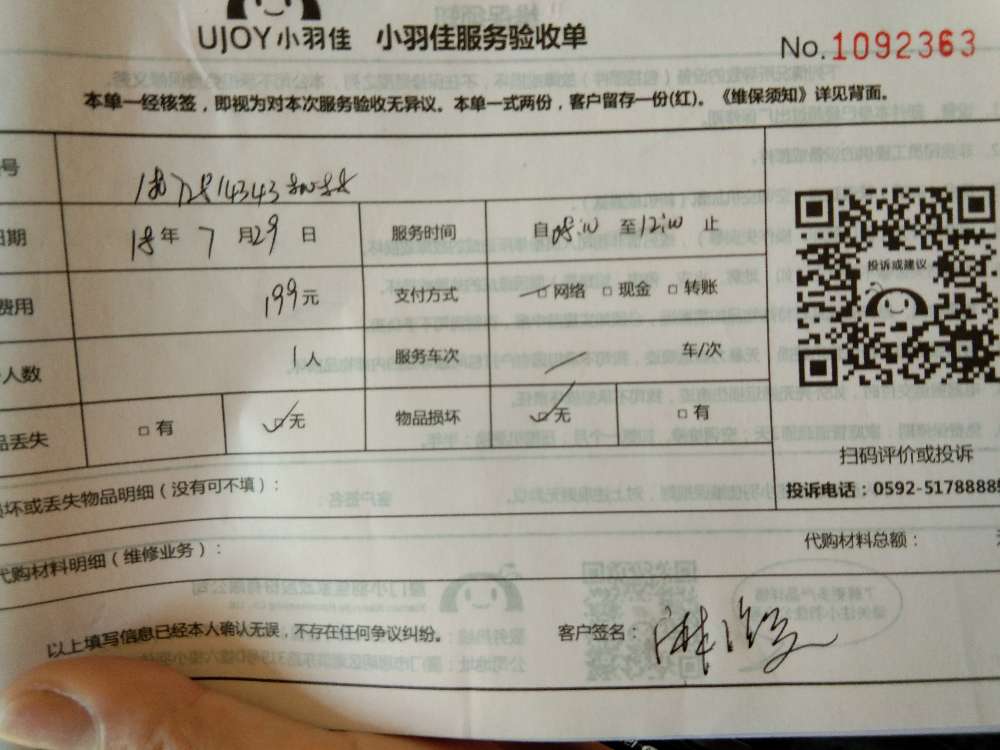 UJOY小羽佳 小羽佳服务验收单
No.1092363
本单一经核签，即视为对本次服务验收无异议。本单一式两份，客户留存一份(红)。《维保须知》详见背面。
号
日期 18年 7月29日 服务时间 自08:00 至12:00 止
费用 199元 支付方式 □网络 □现金 □转账
人数 1人 服务车次 车/次
品丢失 □有 □无 物品损坏 □无 □有
投诉或建议
扫码评价或投诉
投诉电话：0592-5178888
坏或丢失物品明细（没有可不填）：
代购材料明细（维修业务）： 代购材料总额：
以上填写信息已经本人确认无误，不存在任何争议纠纷。 客户签名：